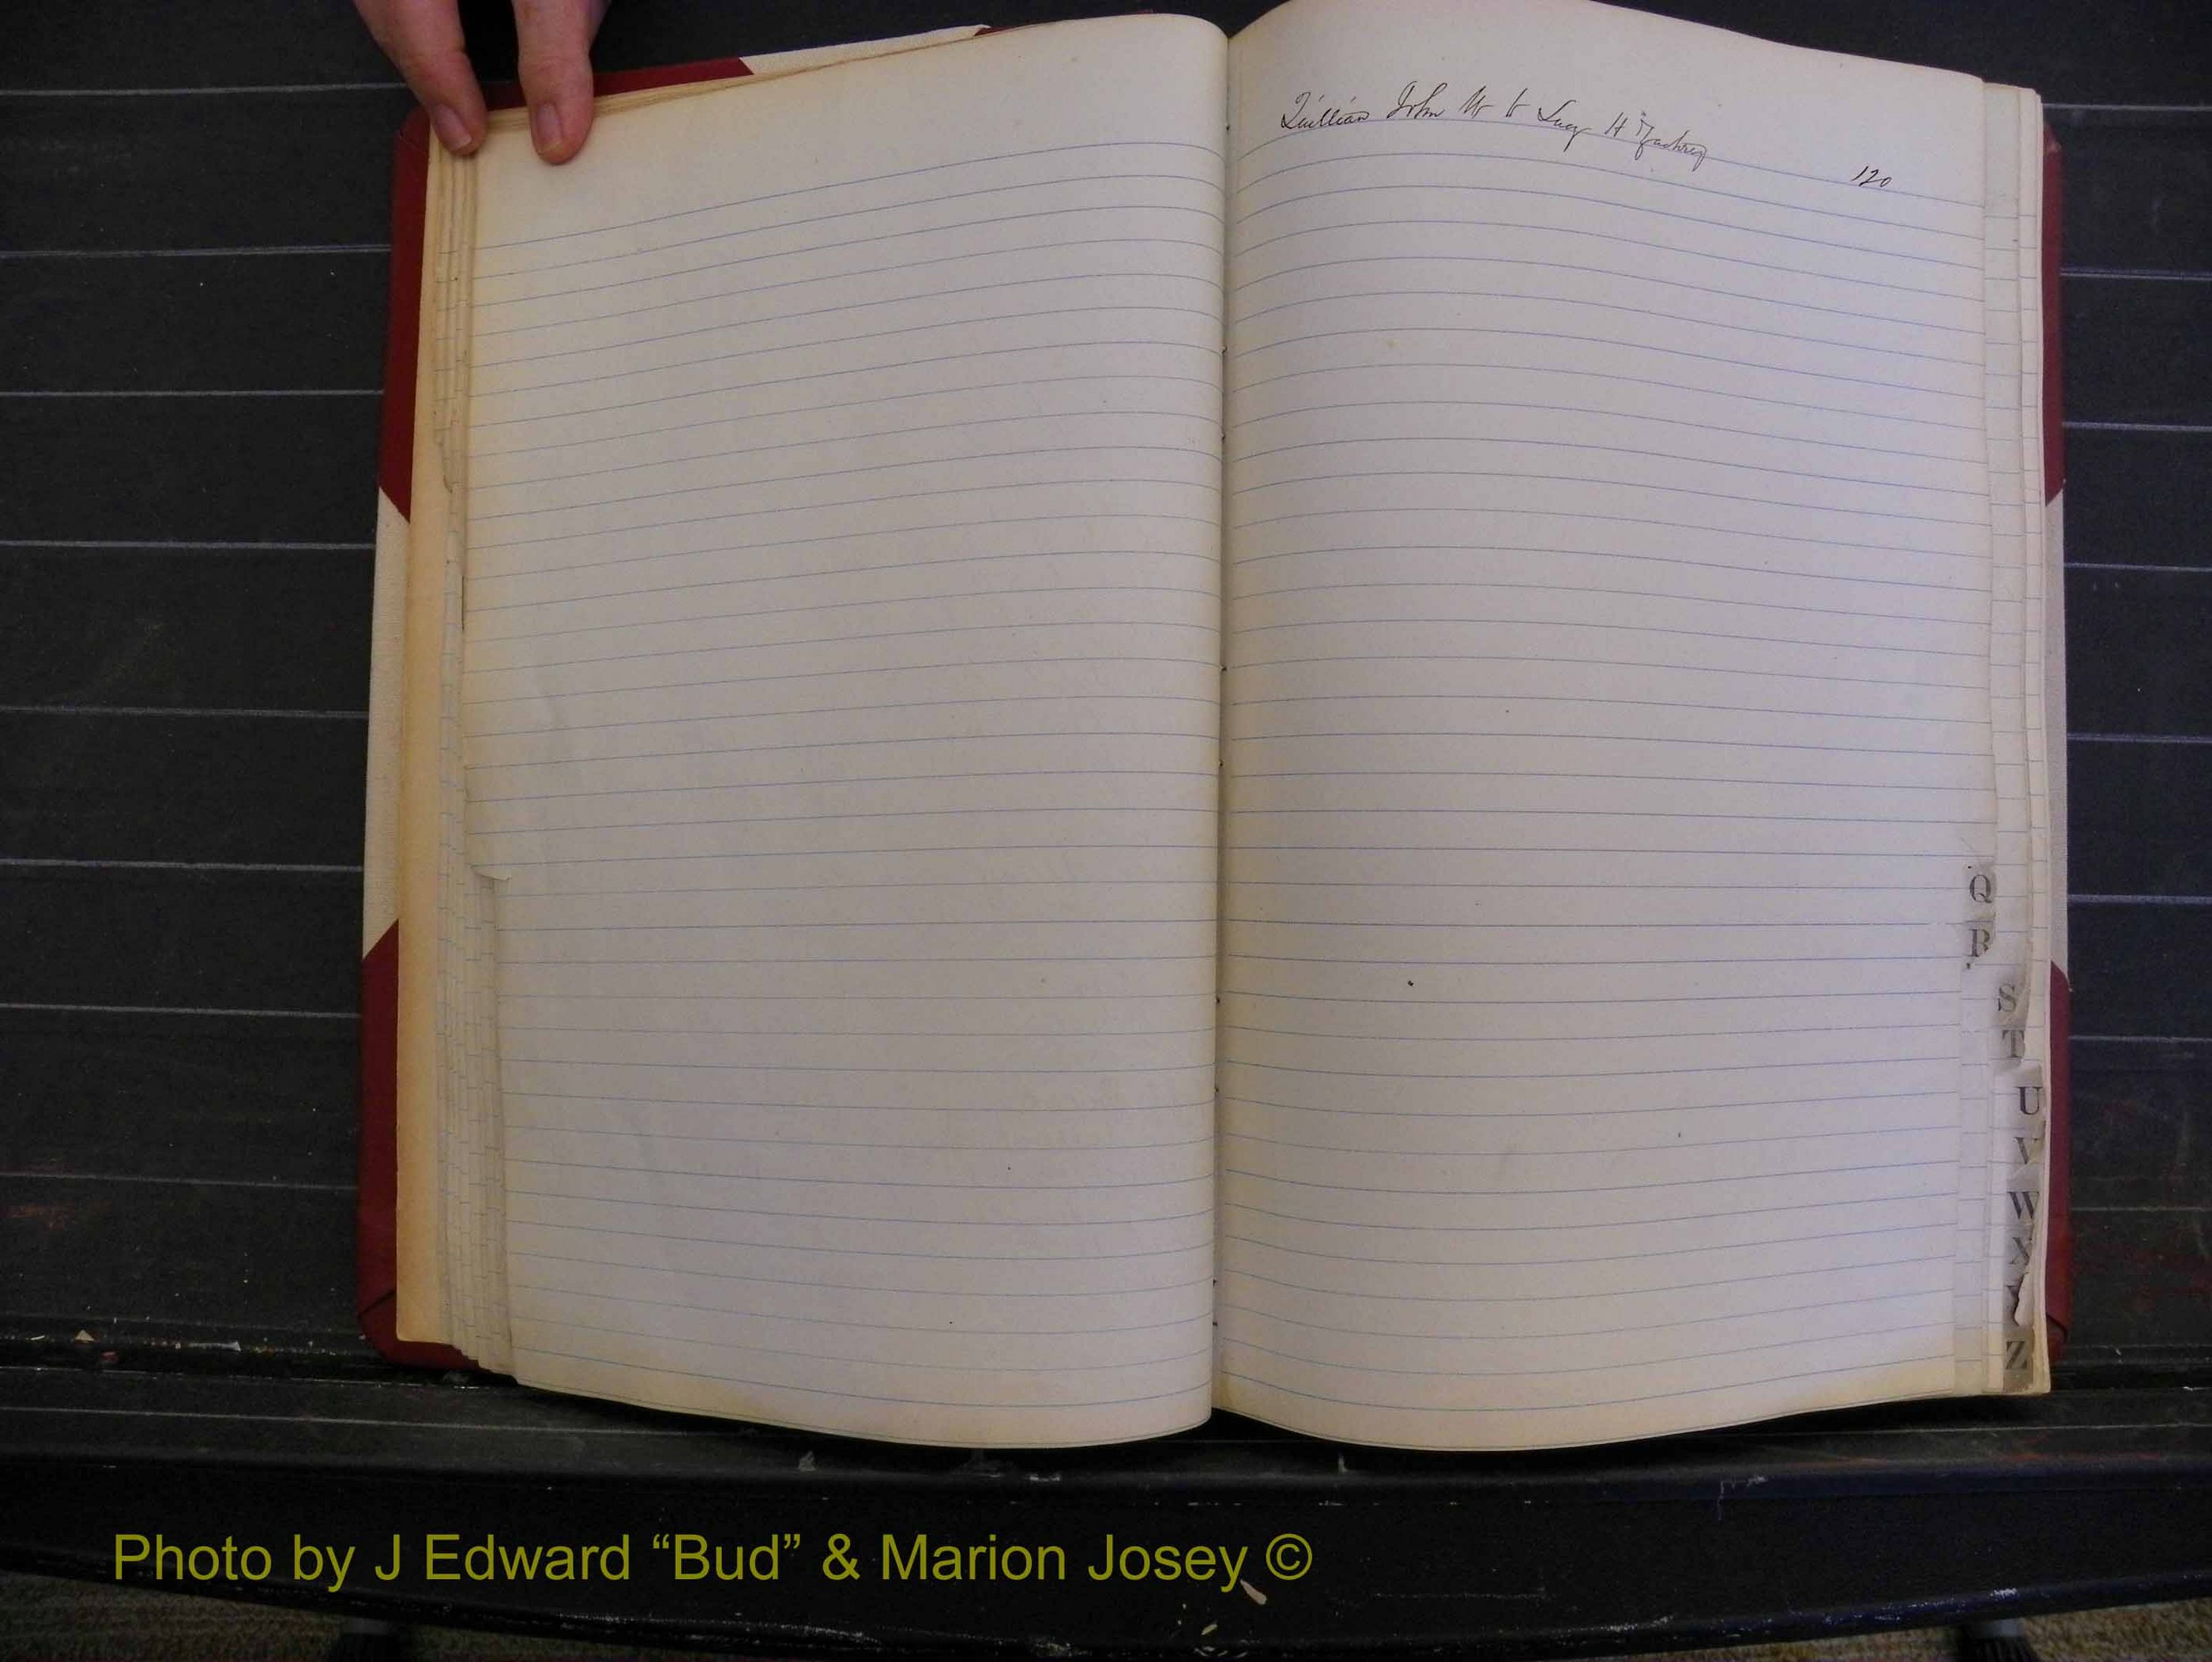 Quillian John W to Lucy H Zachrey 120
Q
R
S
T
U
V
W
X
Z
Photo by J Edward “Bud” & Marion Josey ©